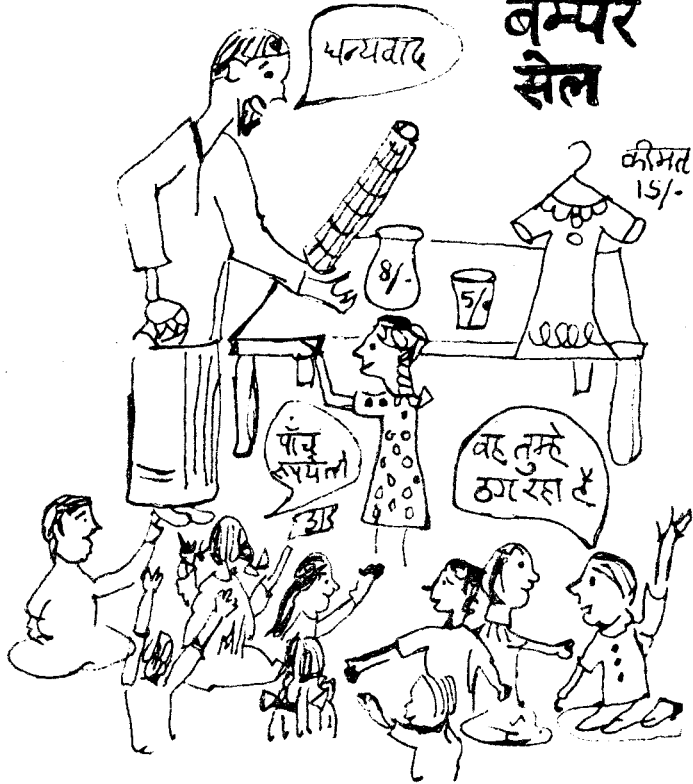 बम्पर
सेल
धन्यवाद
कीमत
15/-
8/-
5/-
पाँच
रुपये लो
वह तुम्हे
ठग रहा है